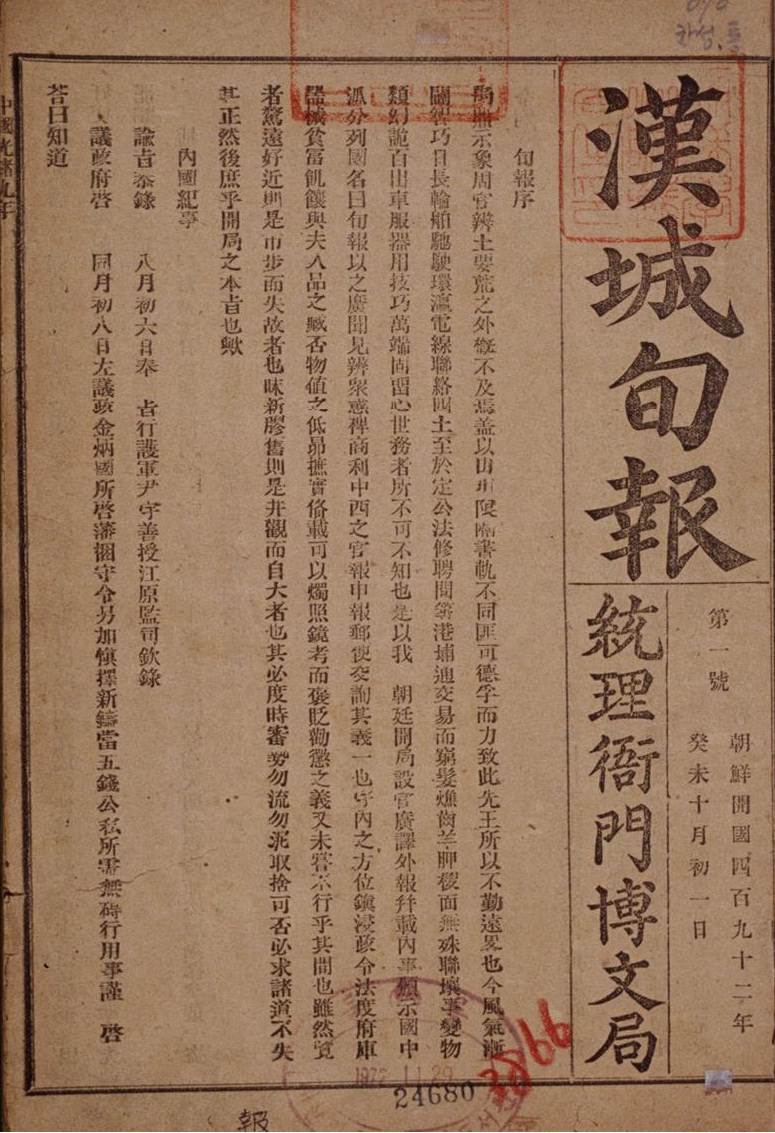 漢城旬報
第一號
朝鮮開國四百九十二年
癸未十月初一日
統理衙門博文局
旬報序
禹鼎示象周官辨土要荒之外槪不及焉盖以山川限隔書軌不同匪可德孚而力致此先王所以不勤遠畧也今風氣漸
闢智巧日長輪舶馳駛環瀛電線聯絡四土至於定公法修聘問築港埔通交易而窮髮燋齒羊胛稷面無殊聯壤事變物
類幻詭百出車服器用技巧萬端固留心世務者所不可不知也是以我 朝廷開局設官廣譯外報幷載內事頒示國中
派分列國名曰旬報以之廣聞見辨衆惑裨商利中西之官報申報郵便交詢其義一也宇內之方位鎭浸政令法度府庫
器械貧富飢饟與夫人品之臧否物値之低昻摭實俻載可以燭照鏡考而褒貶勸懲之義又未嘗不行乎其間也雖然覽
者驚遠好近則是市步而失故者也昧新膠舊則是井觀而自大者也其必度時審勢勿流勿泥取捨可否必求諸道不失
其正然後庶乎開局之本旨也歟
內國紀事
諭旨恭錄 八月初六日奉 旨行護軍尹守善授江原監司欽錄
議政府啓 同月初八日左議政金炳國所啓藩梱守令另加愼擇新鑄當五錢公私所需無碍行用事謹 啓
荅曰知道
中國光緖九年
24680
3866
報